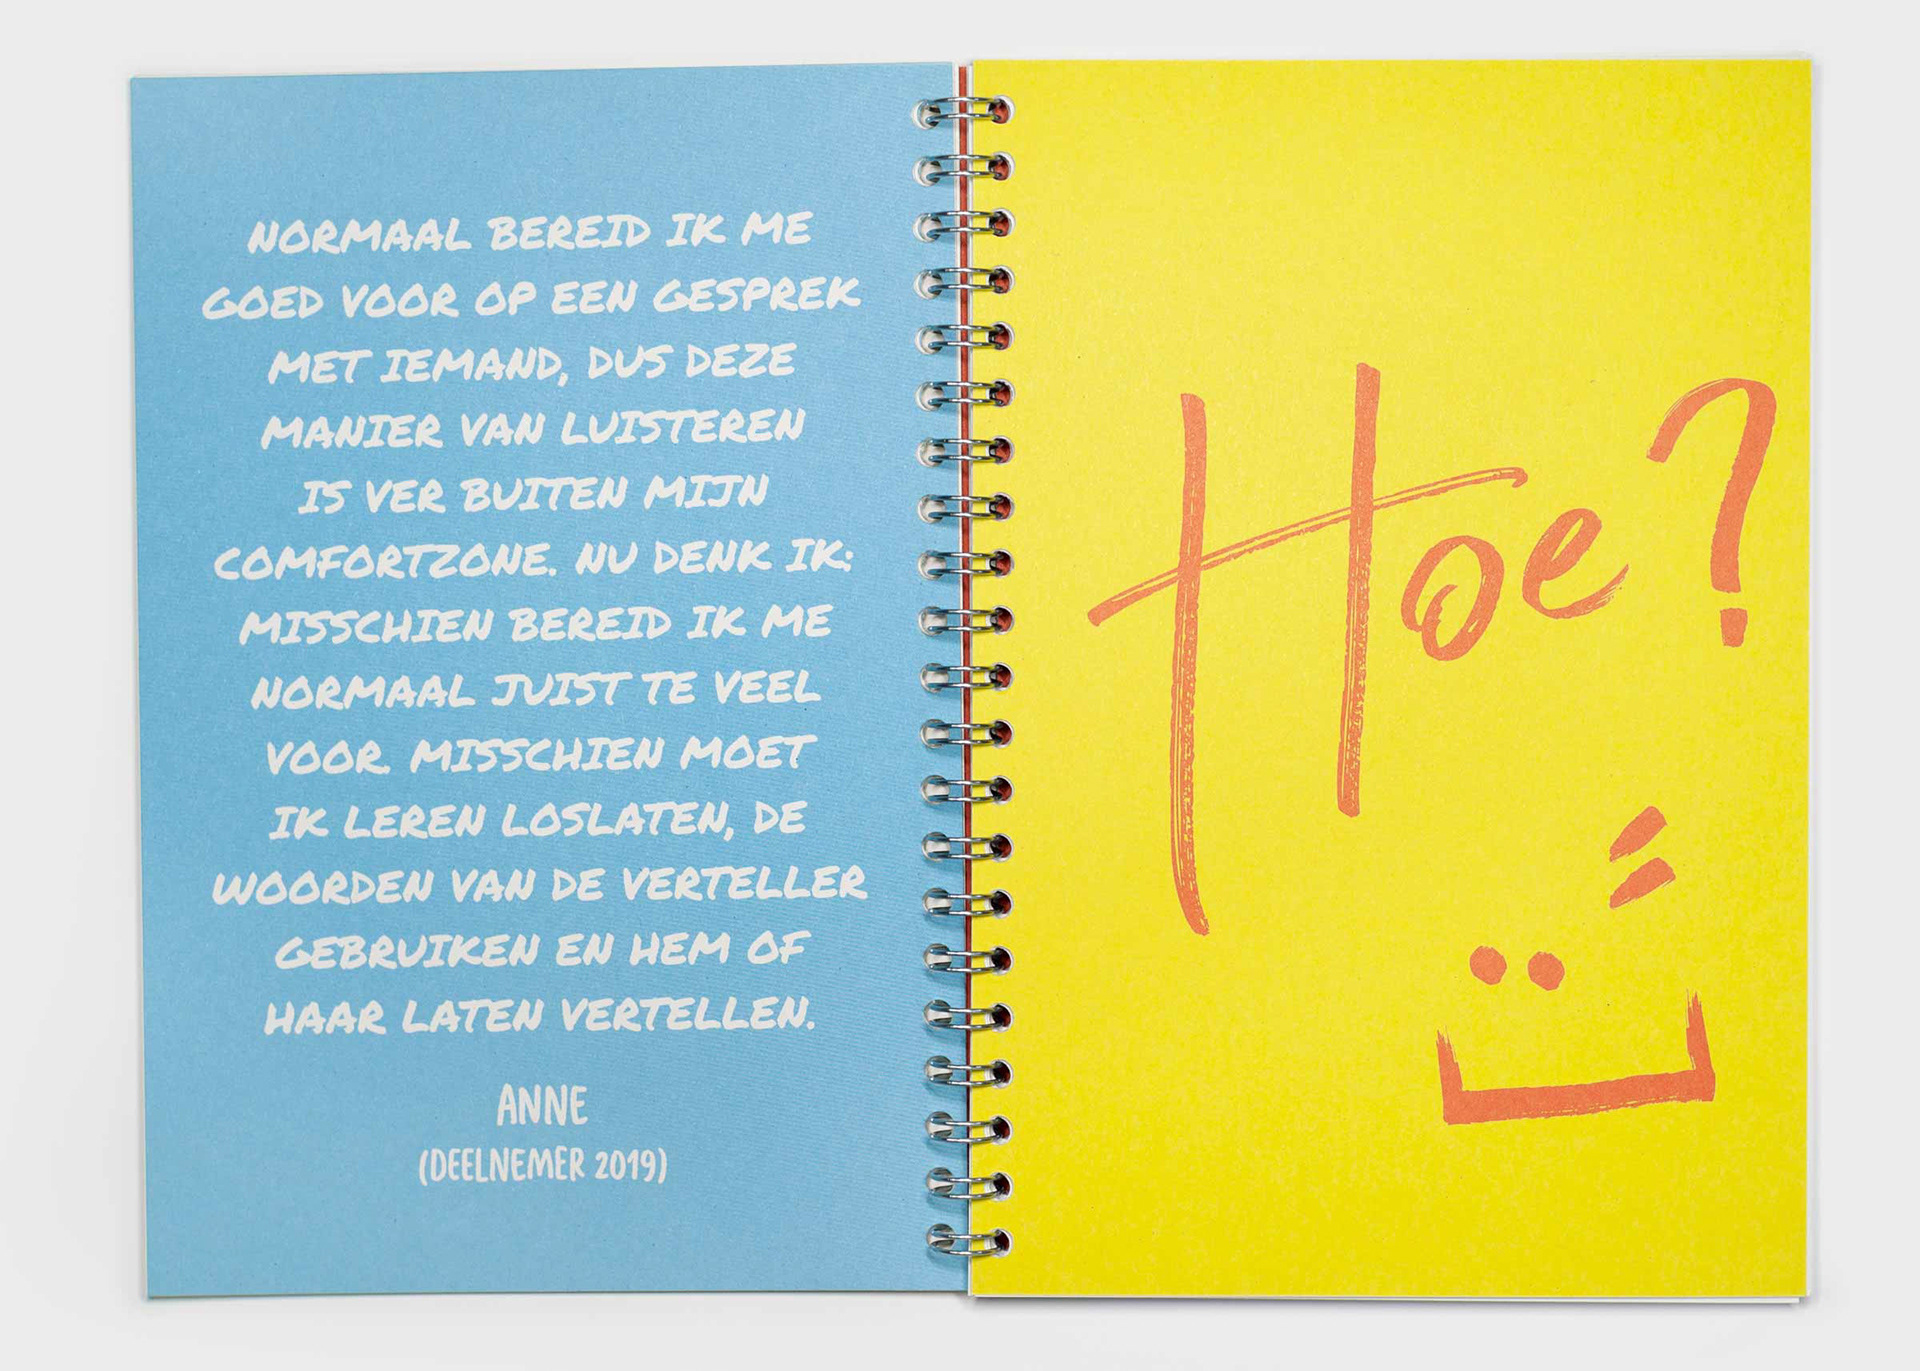 NORMAAL BEREID IK ME
GOED VOOR OP EEN GESPREK
MET IEMAND, DUS DEZE
MANIER VAN LUISTEREN
IS VER BUITEN MIJN
COMFORTZONE. NU DENK IK:
MISSCHIEN BEREID IK ME
NORMAAL JUIST TE VEEL
VOOR. MISSCHIEN MOET
IK LEREN LOSLATEN, DE
WOORDEN VAN DE VERTELLER
GEBRUIKEN EN HEM OF
HAAR LATEN VERTELLEN.
ANNE
(DEELNEMER 2019)
Hoe?